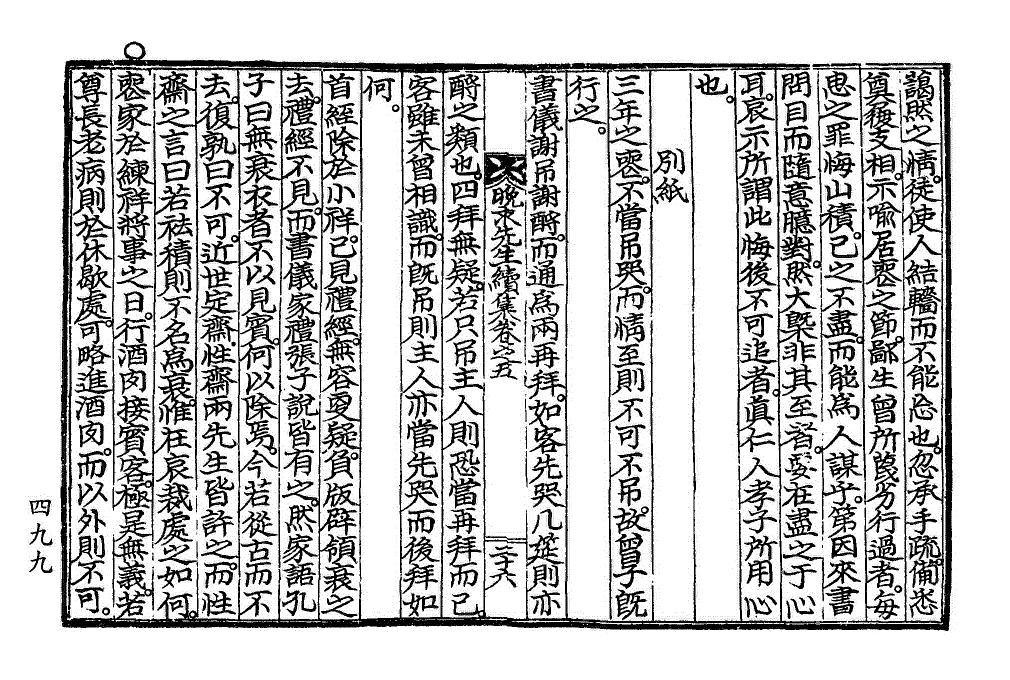 藹然之情。徒使人結轖而不能忘也。忽承手疏。備悉
尊篤支相。示喩居喪之節。鄙生曾所蔑劣行過者。每
思之罪悔山積。己之不盡。而能爲人謀乎。第因來書
問目而隨意臆對。然大槩非其至者。要在盡之于心
耳。哀示所謂此悔後不可追者。眞仁人孝子所用心
也。
別紙
三年之喪。不當吊哭。而情至則不可不吊。故曾子旣
行之。
書儀謝吊謝酹。而通爲兩再拜。如客先哭几筵則亦
晩求先生續集卷之五
二十六
酹之類也。四拜無疑。若只吊主人則恐當再拜而已。
客雖未曾相識。而旣吊則主人亦當先哭而後拜如
何。
首絰除於小祥。已見禮經。無容更疑。負版辟領衰之
去。禮經不見。而書儀家禮張子說皆有之。然家語孔
子曰無衰衣者不以見賓。何以除焉。今若從古而不
去。復孰曰不可。近世定齋,性齋兩先生皆許之。而性
齋之言曰若祛積則不名爲衰。惟在哀裁處之如何。
喪家於練祥將事之日。行酒肉接賓客。極是無義。若
尊長老病則於休歇處。可略進酒肉。而以外則不可。
四九九